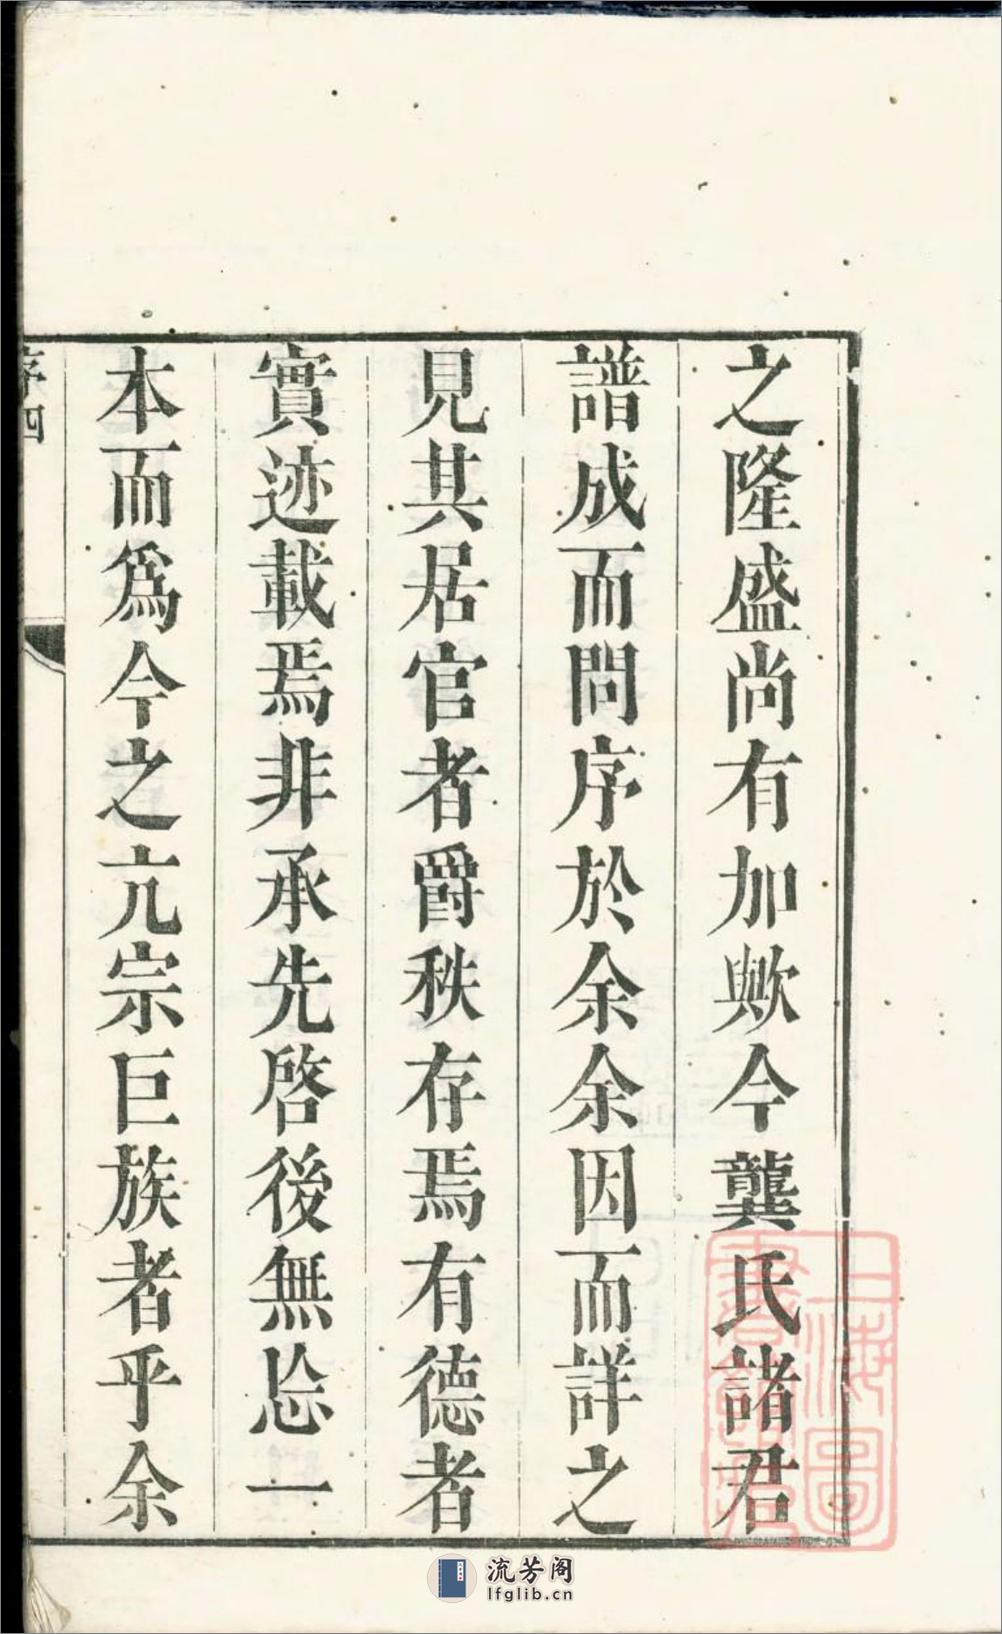 之隆盛尚有加歟今龔氏諸君
譜成而問序於余余因而詳之
見其居官者爵秩存焉有德者
實迹載焉非承先啓後無忝一
本而爲今之亢宗巨族者乎余
序四
上海圖書館藏
流芳阁
lfglib.cn